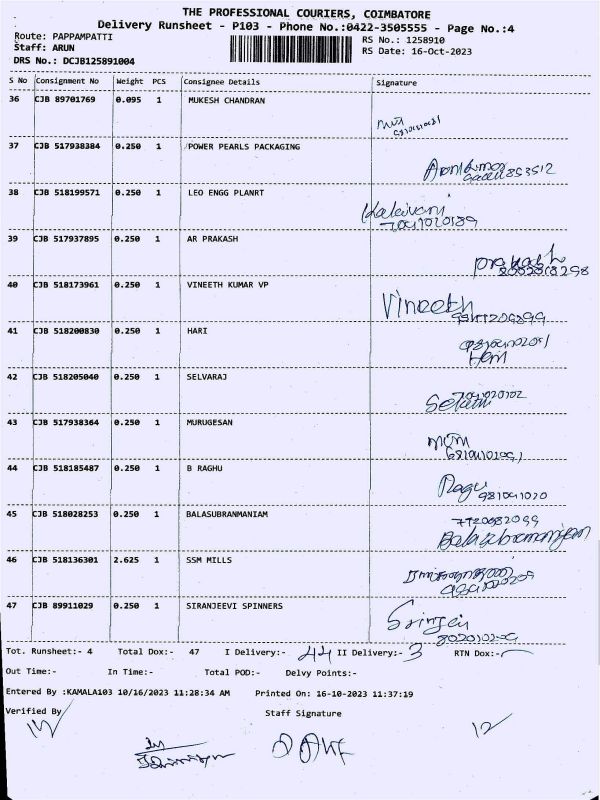 THE PROFESSIONAL COURIERS, COIMBATORE
Delivery Runsheet - P103 - Phone No.:0422-3505555 - Page No.:4
Route: PAPPAMPATTI RS No.: 1258910
Staff: ARUN RS Date: 16-Oct-2023
DRS No.: DCJB125891004
S No Consignment No Weight PCS Consignee Details Signature
36 CJB 89701769 0.095 1 MUKESH CHANDRAN
37 CJB 517938384 0.250 1 POWER PEARLS PACKAGING
38 CJB 518199571 0.250 1 LEO ENGG PLANRT
Kalaivani
7041020189
39 CJB 517937895 0.250 1 AR PRAKASH
prakash
40 CJB 518173961 0.250 1 VINEETH KUMAR VP
Vineeth
41 CJB 518200830 0.250 1 HARI
Hari
42 CJB 518205040 0.250 1 SELVARAJ
43 CJB 517938364 0.250 1 MURUGESAN
44 CJB 518185487 0.250 1 B RAGHU
Ragu
981041020
45 CJB 518028253 0.250 1 BALASUBRANMANIAM
7720982099
Balasubramaniyam
46 CJB 518136301 2.625 1 SSM MILLS
47 CJB 89911029 0.250 1 SIRANJEEVI SPINNERS
Tot. Runsheet:- 4 Total Dox:- 47 I Delivery:- 44 II Delivery:- 3 RTN Dox:-
Out Time:- In Time:- Total POD:- Delvy Points:-
Entered By :KAMALA103 10/16/2023 11:28:34 AM Printed On: 16-10-2023 11:37:19
Verified By Staff Signature
12